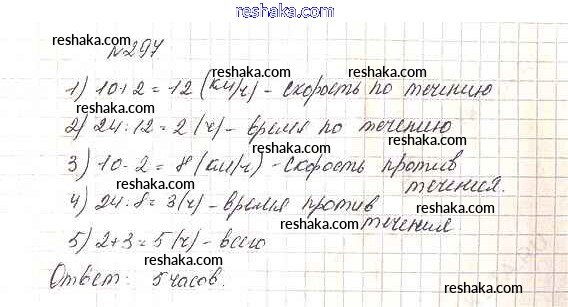 www.reshaka.com
reshaka.com
№297
reshaka.com reshaka.com
1) 10+2=12 (км/ч) - скорость по течению
reshaka.com reshaka.com
2) 24:12=2 (ч) - время по течению
reshaka.com
3) 10-2=8 (км/ч) - скорость против
течения.
reshaka.com reshaka.com
4) 24:8=3 (ч) - время против
течения
reshaka.com
5) 2+3=5 (ч) - всего
reshaka.com
Ответ: 5 часов.
reshaka.com